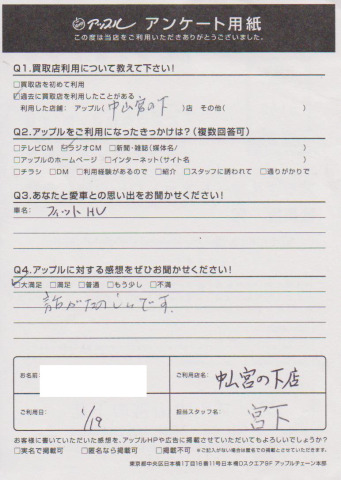 アップル アンケート用紙
この度は当店をご利用いただきありがとうございました。
Q1.買取店利用について教えて下さい!
□買取店を初めて利用
☑過去に買取店を利用したことがある
利用した店舗: アップル(中山宮の下)店 その他( )
Q2.アップルをご利用になったきっかけは?(複数回答可)
□テレビCM ☑ラジオCM □新聞・雑誌(媒体名/ )
□アップルのホームページ □インターネット(サイト名 )
□チラシ □DM □利用経験があるので □紹介 □スタッフに誘われて □通りがかりで
Q3.あなたと愛車との思い出をお聞かせください!
車名: フィット HV
Q4.アップルに対する感想をぜひお聞かせください!
☑大満足 □満足 □普通 □もう少し □不満
話がたのしいです。
お名前:
ご利用店名: 中山宮の下店
ご利用日: 1/19
担当スタッフ名: 宮下
お客様に書いていただいた感想を、アップルHPや広告に掲載させていただいてもよろしいでしょうか?
□実名で掲載可 □匿名なら掲載可 □掲載不可 ※ご記入がない場合は匿名での掲載とさせていただきます。
東京都中央区日本橋1丁目16番11号日本橋Dスクエア8F アップルチェーン本部